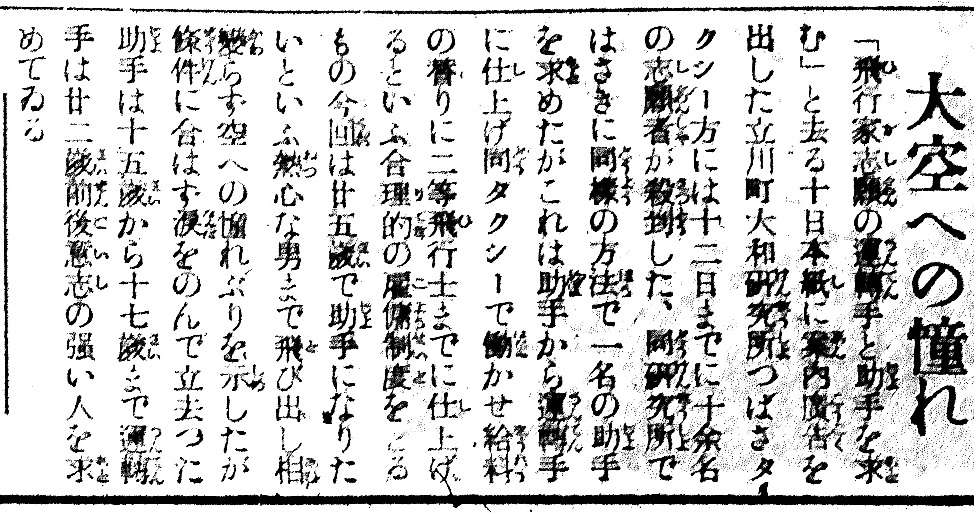 大空への憧れ
「飛行家志願の運轉手と助手を求
む」と去る十日本紙に案内廣告を
出した立川町大和研究所つばさタ
クシー方には十二日までに十余名
の志願者が殺到した、同研究所で
はさきに同樣の方法で一名の助手
を求めたがこれは助手から運轉手
に仕上げ同タクシーで働かせ給料
の替りに二等飛行士までに仕上げ
るといふ合理的の雇傭制度をとる
もの今回は廿五歲で助手になりた
いといふ熱心な男まで飛び出し相
變らず空への憧れぶりを示したが
條件に合はず淚をのんで立去つた
助手は十五歲から十七歲まで運轉
手は廿二歲前後意志の强い人を求
めてゐる